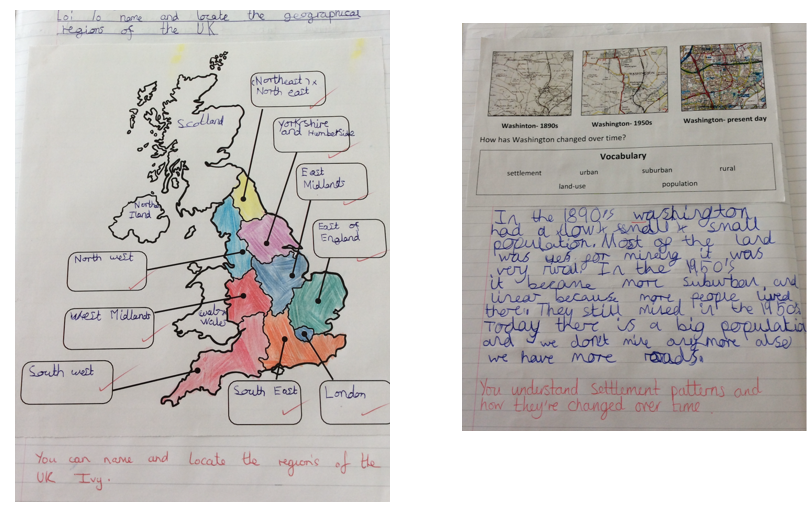 Loi To name and locate the geographical
regions of the UK
(Northeast) x
North east
Scotland
Yorkshire
and Humberside
East
Midlands
North
Iland
East of
England
North west
West Midlands
Wales
South west
South East
London
You can name and locate the region's of the
UK Ivy.
Washinton- 1890s
Washington- 1950s
Washington- present day
How has Washington changed over time?
Vocabulary
settlement
urban
suburban
rural
land-use
population
In the 1890's washington
had a small x small
population. Most of the land
was for mineing it was
very rural In the 1950's
it became more suburban and
linear because more people lived
there. They still mined in the 1950s
Today there is a big populatio
and we don't mine anymore also
we have more roads.
You understand settlement patterns and
how they're changed over time.